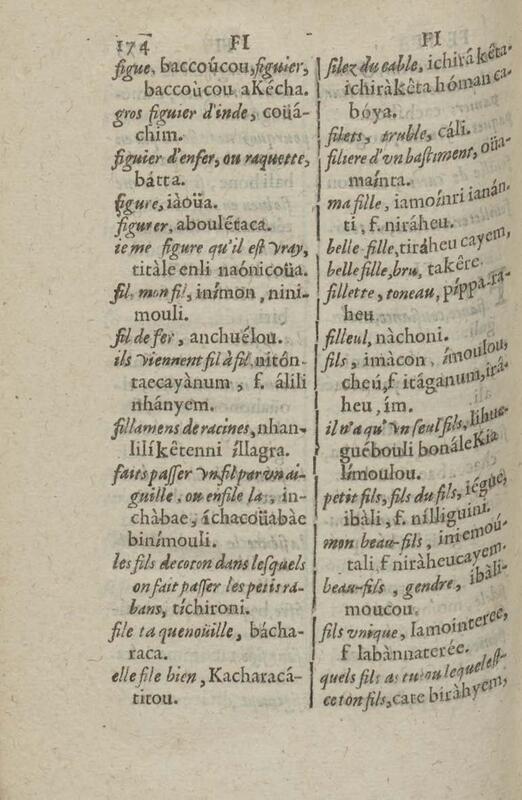 174 FI
figue, baccoúcou, figuier,
baccoùcou aKécha.
gros figuier d'inde, coüá-
chim.
figuier d'enfer, ou raquette,
bátta.
figure, iàoüa.
figurer, aboulétaca.
ie me figure qu'il est vray,
titàle enli naónicoüa.
fil, mon fil, inímon, nini-
mouli.
fil de fer, anchuélou.
ils viennent fil à fil, nitôn-
taecayànum, f. álili
nhányem.
fillamens de racines, nhan-
lilíkêtenni íllagra.
faits passer vn fil par vn ai-
guille, ou enfile la, in-
chàbae, íchacoüabàe
binímouli.
les fils de coton dans lesquels
on fait passer les petis ra-
bans, tíchironi.
file ta quenoüille, bácha-
raca.
elle file bien, Kacharacá-
titou.
FI
filez du cable, ichirá kêta-
ichiràkêta hóman ca-
bóya.
filets, truble, cáli.
filiere d'vn bastiment, oüa-
maínta.
ma fille, iamoínri ianán-
ti, f. niráheu.
belle fille, tiráheu cayem,
belle fille, bru, takêre.
fillette, toneau, píppa-ra-
heu
filleul, nàchoni.
fils, imàcon, ímoulou,
cheú, f itáganum, irá-
heu, ím.
il n'a qu'vn seul fils, lihue-
guébouli bonále Kia
límoulou.
petit fils, fils du fils, iégue,
ibàli, f. nílliguini.
mon beau-fils, iniemoú-
tali f niràheucayem.
beau-fils, gendre, ibàli-
moucou.
fils vnique, Iamointerée,
f labànnaterée.
quels fils as tu, ou lequel est-
ce ton fils, cate biràhyem,